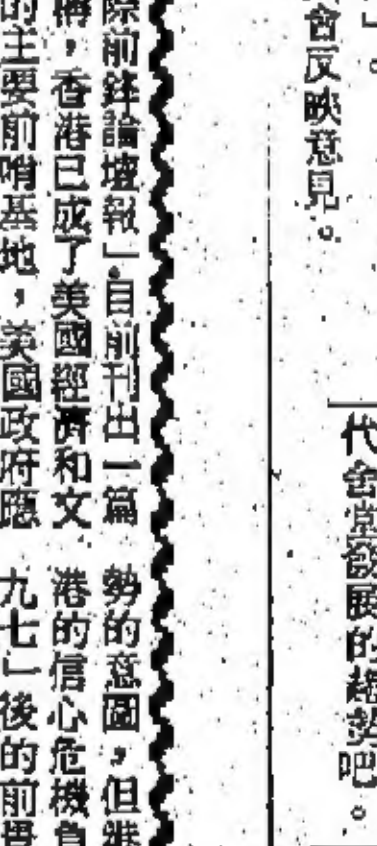 」。
會反映意見。
代會堂發展的趨勢吧。
際前鋒論壇報」目前刊出一篇
稱，香港已成了美國經濟和文
的主要前哨基地，美國政府應
勢的意圖，但港
港的信心危機負
九七」後的前景